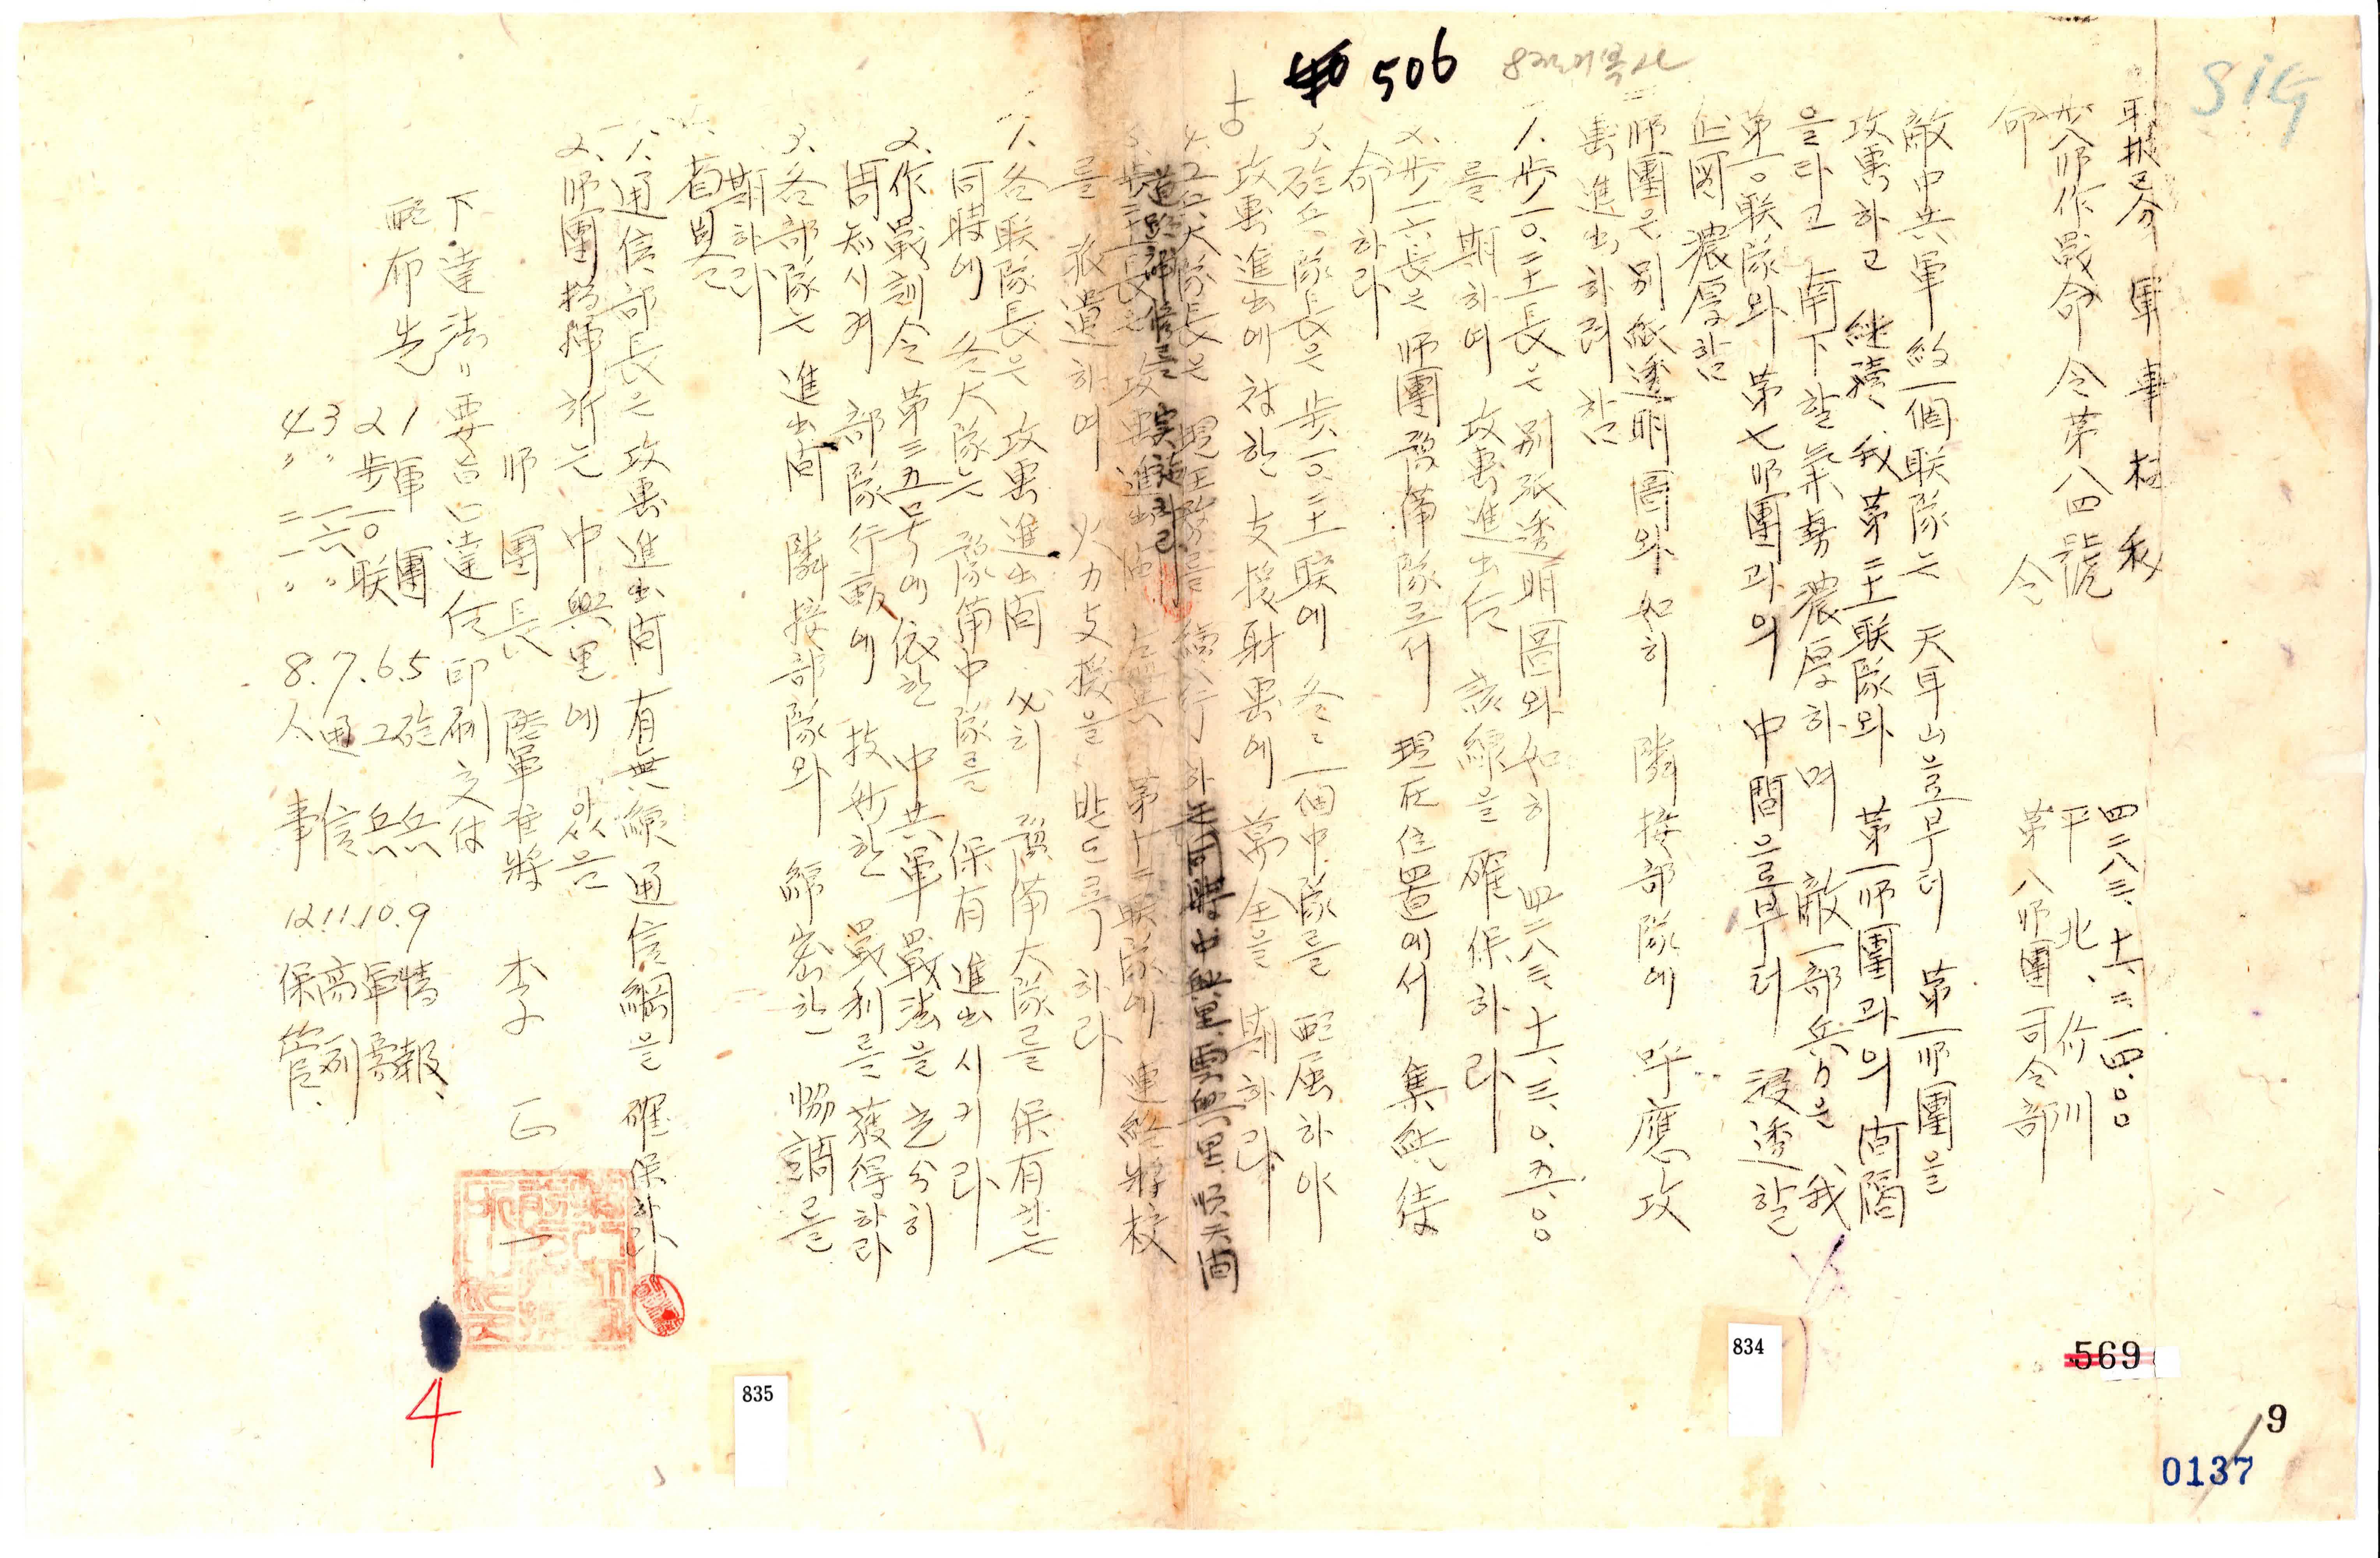 SIG
506
軍事極秘
步八師作戰命令第八四號
四二八三、十一、二、一四.〇〇
平北、价川
第八師團司令部
命 令
敵中共軍 約一個联隊는 天平山으로부터 第一師團을
攻擊하고 繼續、我第二十一联隊와 第一師團과의 間隔
을 타고 南下할 氣勢 濃厚하며 敵一部兵力은 我
第一〇联隊와 第七師團과의 中間으로부터 浸透할
企図 濃厚함
二、師團은 別紙透明圖와 如히 隣接部隊에 呼應 攻
擊進出하려 함
1. 步一〇、二十一長은 別紙透明圖와 如히 四二八三、十一、三、〇五.〇〇
를 期하여 攻擊進出后 該線을 確保하라
2. 步一六長은 師團豫備隊로서 現在位置에서 集結 待
命하라
3. 砲兵隊長은 步一〇、二十一联에 各各 一個中隊를 配屬하야
攻擊進出에 対한 支援射擊에 萬全을 期하라
4. 工兵大隊長은 現任務를 續行하는 同時 中興里、
道路 를 實施하라
5. 步二十一長은 攻擊進出間 右翼 第十二联隊에 連絡將校
를 派遣하여 火力支援을 받도록 하라
1. 各联隊長은 攻擊進出間 必히 豫備大隊를 保有하는
同時에 各大隊는 豫備中隊를 保有 進出시키라
2. 作戰訓令 第三五号에 依한 中共軍 戰法을 充分히
周知시켜 部隊行動에 技妙한 戰利를 獲得하라
3. 各部隊는 進出間 隣接部隊와 綿密한 協調를
期하라
1. 通信部長은 攻擊進出間 有無線 通信網을 確保하라
2. 師團指揮所는 中興里에 있음
師團長 陸軍准將 李
下達法 要旨口達后 印刷 交付
配布先
1 軍團 5. 砲兵 9 情報、
2 步一〇联 6. 工兵 10. 軍需
3 〃 一六 〃 7. 通信 11. 高列
4 〃 二一 〃 8. 人事 12 保管、
4
835
834
569
9
0137